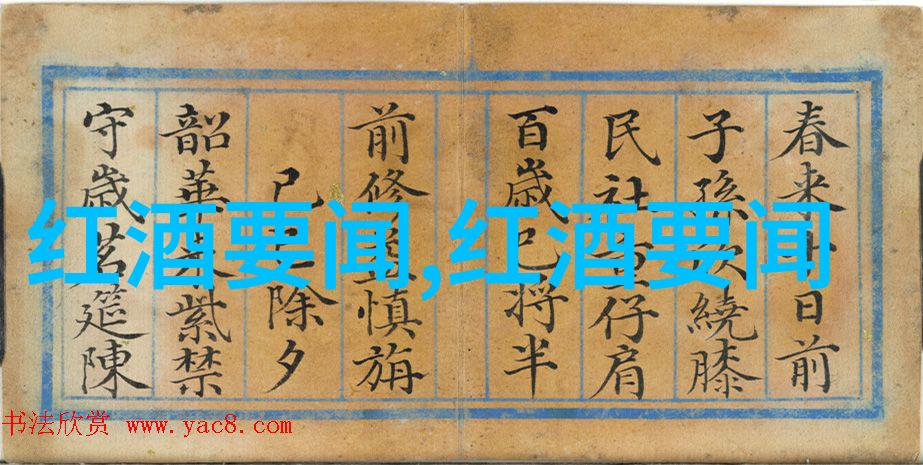 春来十日前
子孫繞膝
民社重仔肩
百歲已将半
前修慎旃
己巳除夕
韶華来紫禁
守歲茗筵陳
红酒要闻,红酒要闻
书法欣赏 www.yac8.com